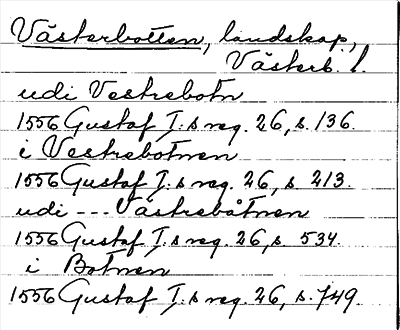 Västerbotten, landskap,
Västerb. l.
udi Vestrebotn
1556 Gustaf I:s reg. 26, s. 136.
i Vestrebotnen
1556 Gustaf I:s reg. 26, s. 213.
udi --- Västrebåtnen
1556 Gustaf I:s reg. 26, s. 534.
i Botnen
1556 Gustaf I:s reg. 26, s. 749.